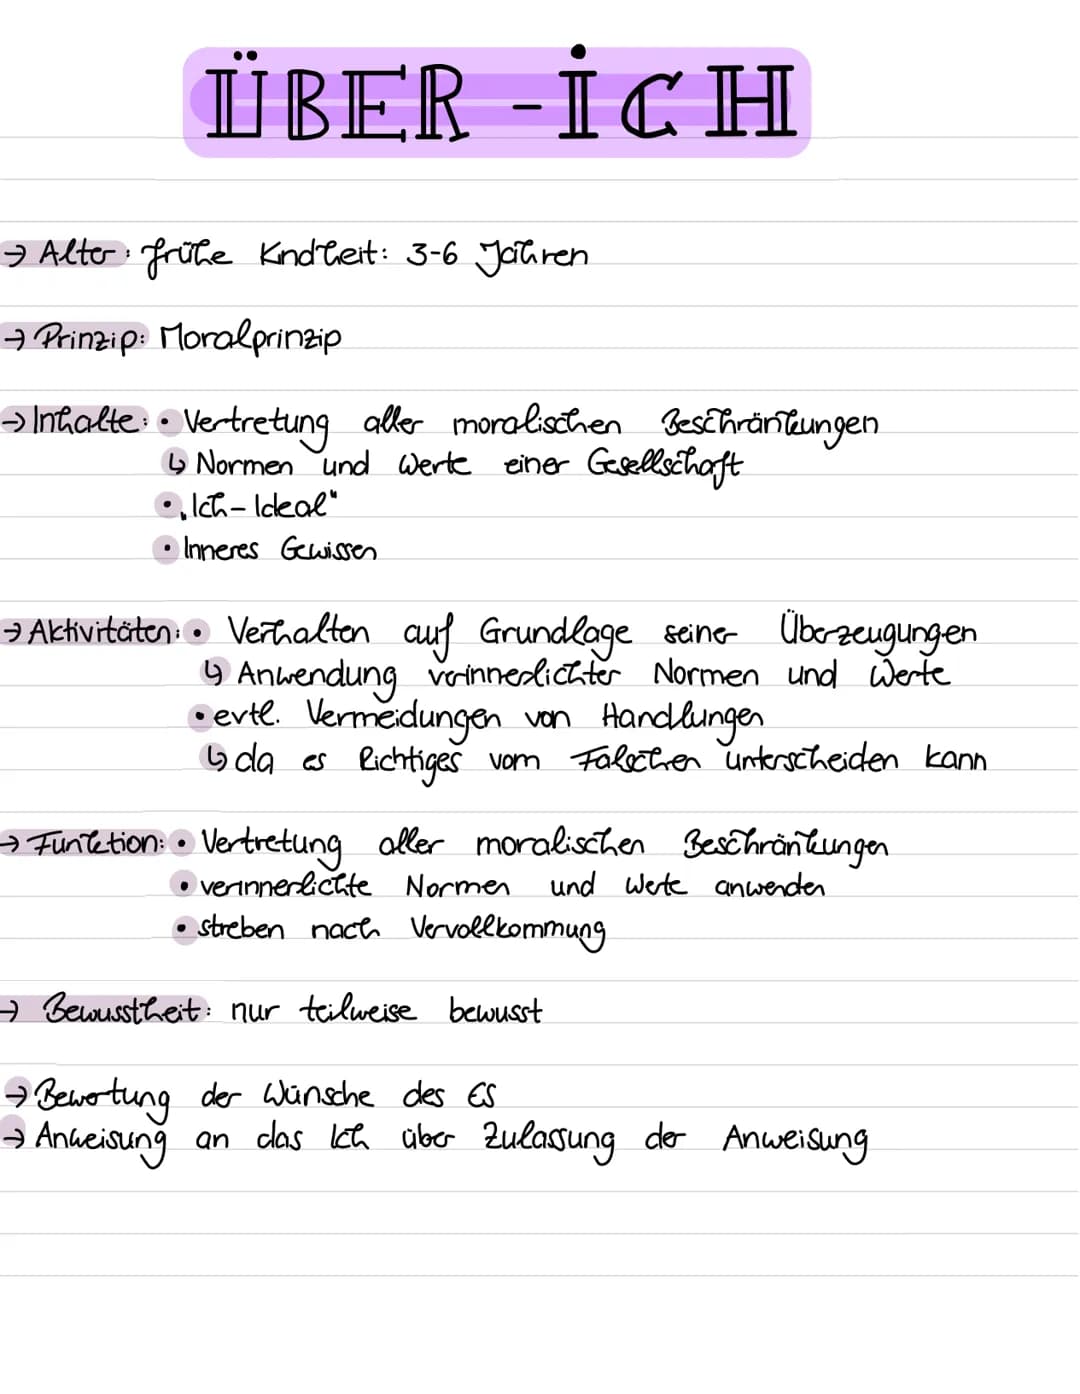 ÜBER-ICH
→ Alter: frühe Kndheit: 3-6 Jahren
→ Prinzip: Moralprinzip
→ Inhalte: • Vertretung aller moralischen Beschränkungen
↳ Normen und Werte einer Gesellschaft
• „Ich-Ideal"
• Inneres Gewissen
→ Aktivitäten: • Verhalten auf Grundlage seiner Überzeugungen
↳ Anwendung verinnerlichter Normen und Werte
• evtl. Vermeidungen von Handlungen
↳ da es Richtiges vom Falschen unterscheiden kann
→ Funktion: • Vertretung aller moralischen Beschränkungen
• verinnerlichte Normen und Werte anwenden
• streben nach Vervollkommung
→ Bewusstheit: nur teilweise bewusst
→ Bewertung der Wünsche des ES
→ Anweisung an das Ich über Zulassung der Anweisung